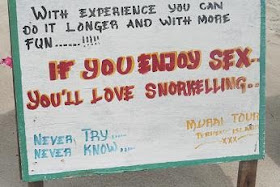 WITH EXPERIENCE YOU CAN
DO IT LONGER AND WITH MORE
FUN......!!!!!
IF YOU ENJOY SEX..
YOU'LL LOVE SNORKELLING...
NEVER TRY....
NEVER KNOW....
MURAI TOUR
XXX